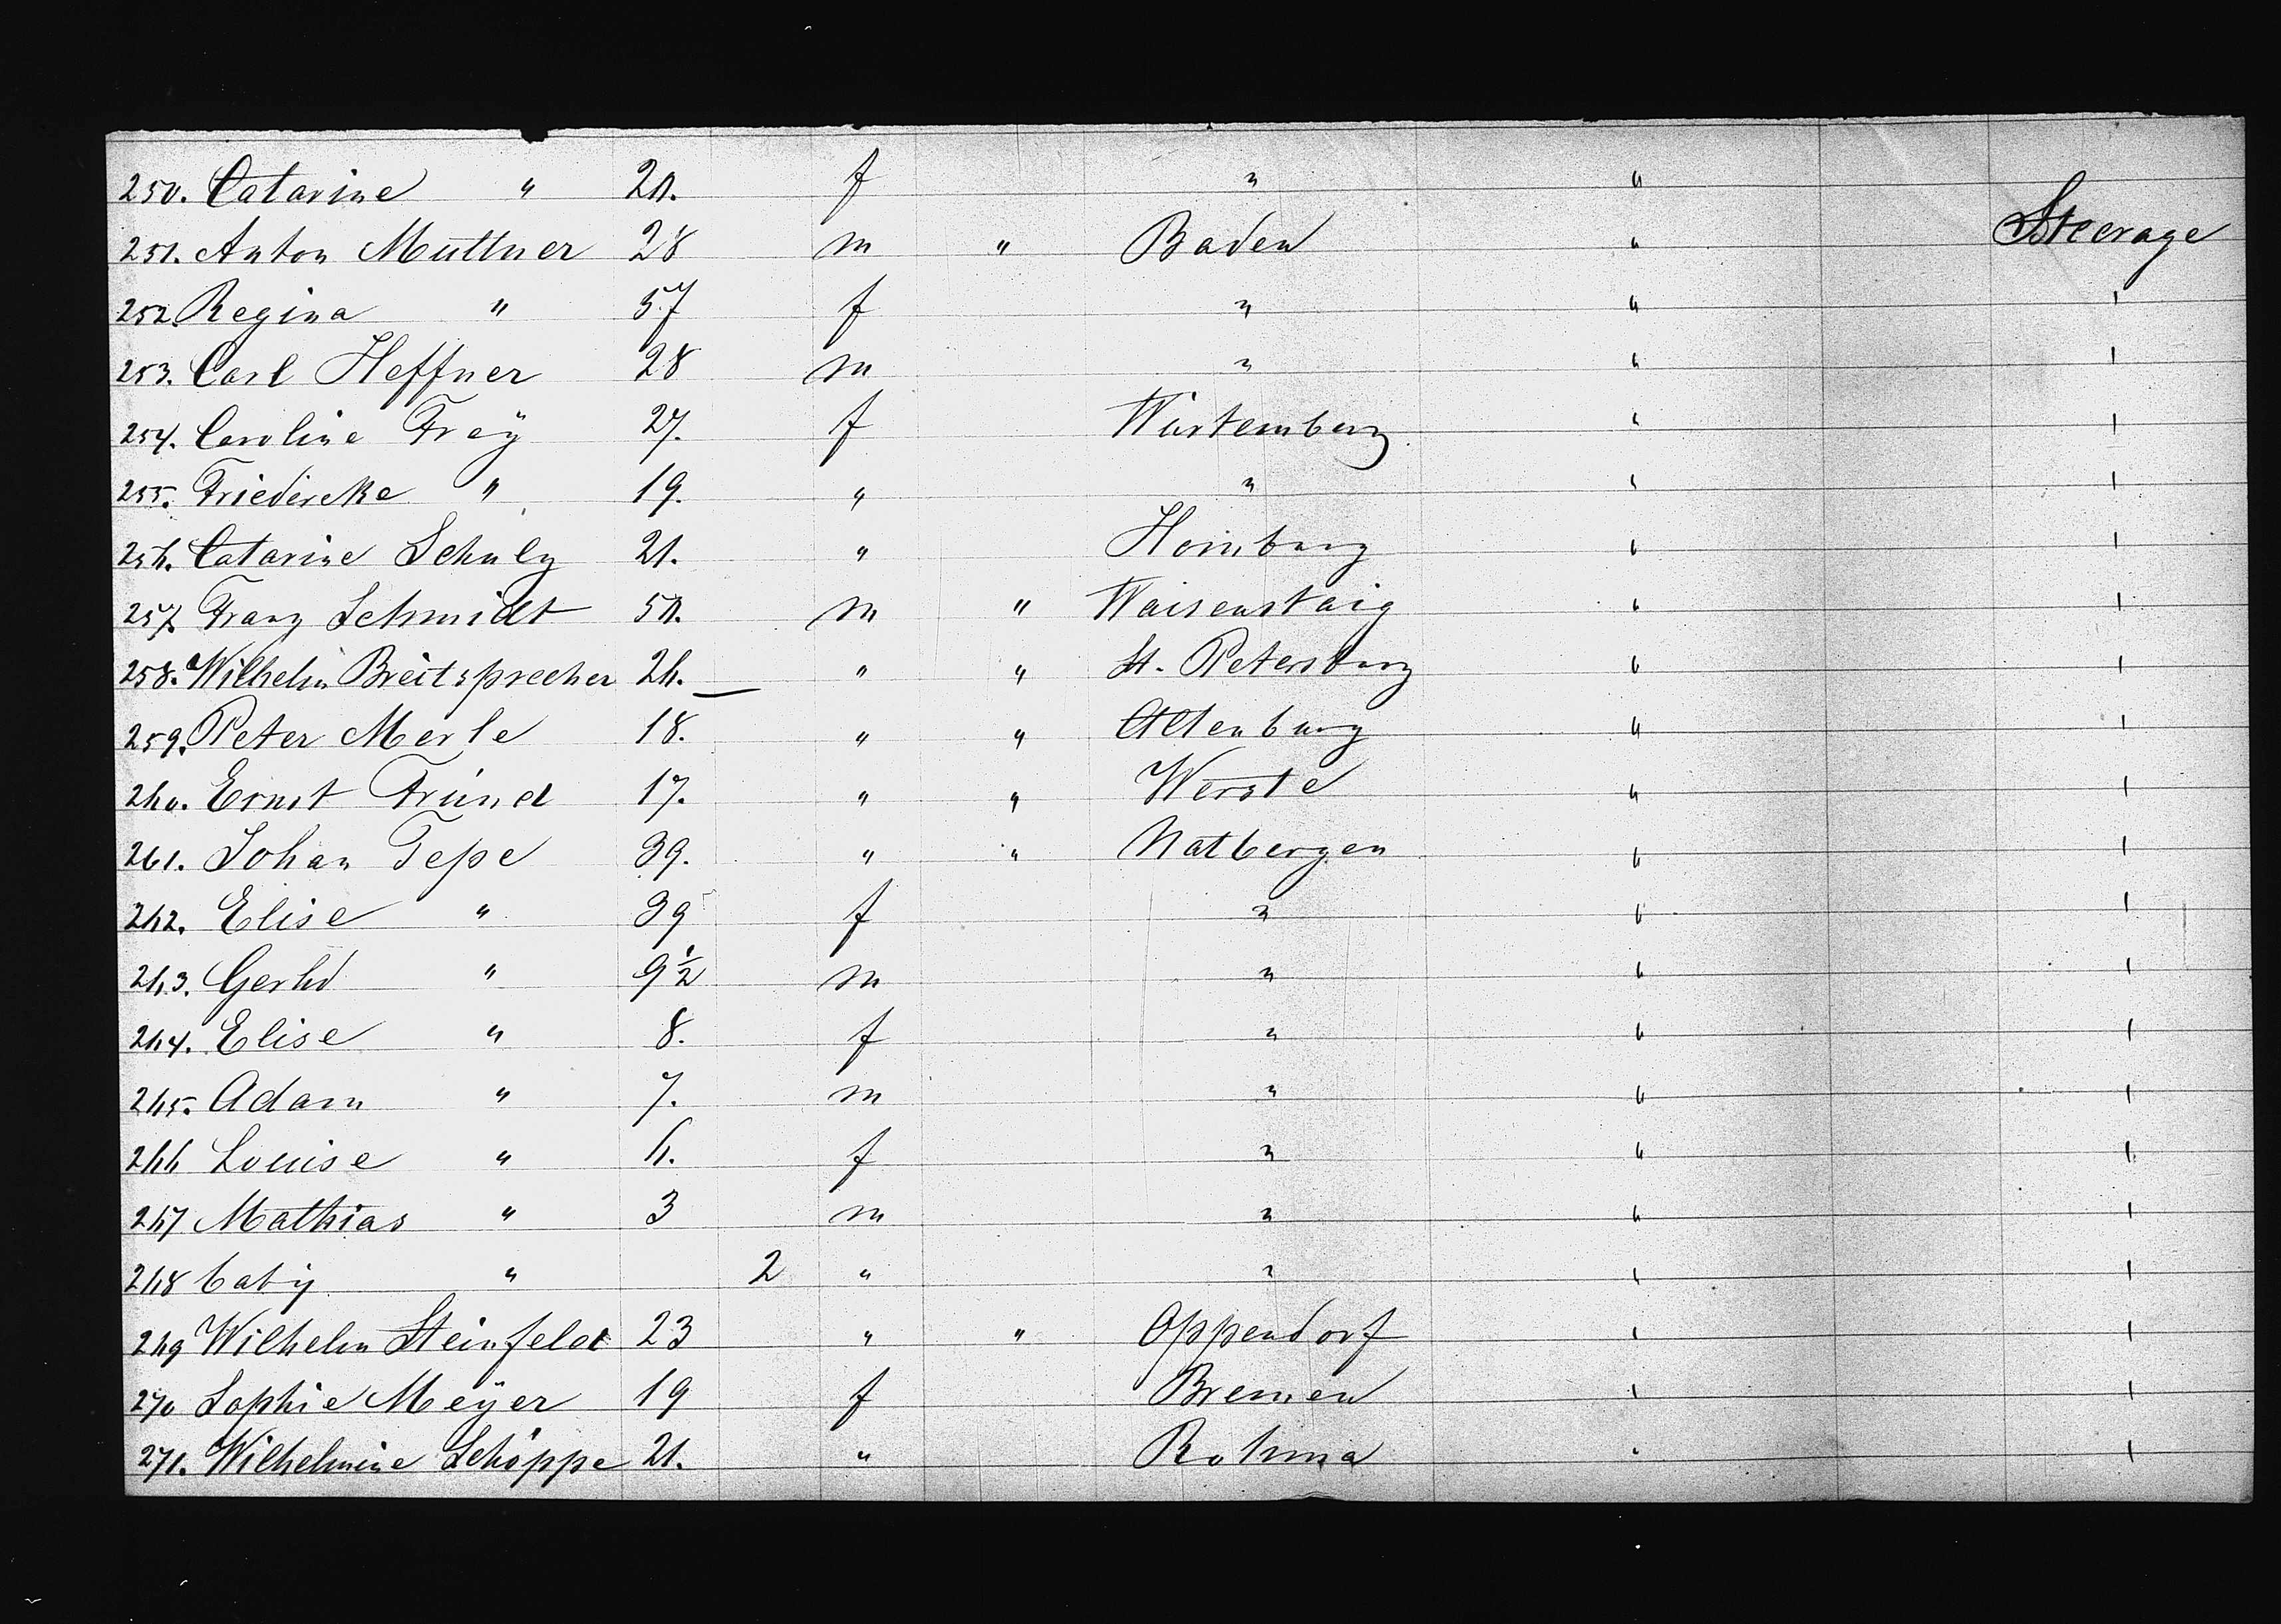 250. Catarine " 20. f " "
251. Anton Müttner 28 m " Baden " Steerage
252. Regina " 57 f " " "
253. Carl Heffner 28 m " " "
254. Caroline Freÿ 27. f Würtemberg " "
255. Friedericke " 19. " " " "
256. Catarine Schulz 21. " Homburg " "
257. Franz Schmidt 50. m " Waisenstaig " "
258. Wilhelm Breitsprecher 26. " " St. Petersburg " "
259. Peter Merle 18. " " Altenburg " "
260. Ernst Fründ 17. " " Werste " "
261. Johan Tepe 39. " " Natbergen " "
262. Elise " 39 f " " "
263. Gerhd " 9½ m " " "
264. Elise " 8. f " " "
265. Adam " 7. m " " "
266 Louise " 6. f " " "
267 Mathias " 3 m " " "
268 baby " 2 " " " "
269 Wilhelm Steinfeld 23 " " Oppendorf " "
270 Sophie Meÿer 19 f Bremen " "
271. Wilhelmine Schöppe 21. " Rohma " "